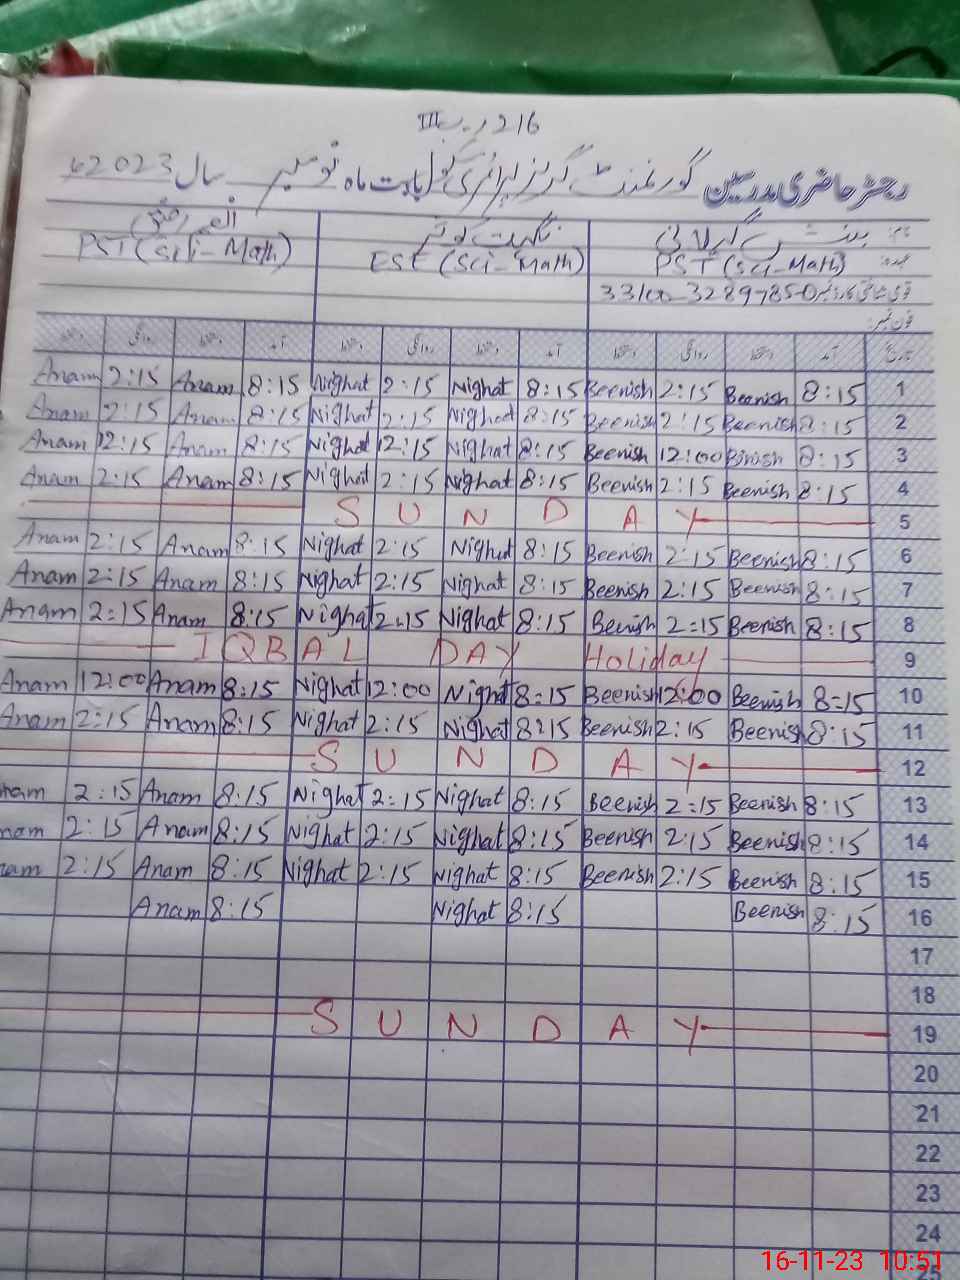 216 ر۔ب III
رجسٹر حاضری مدرسین گورنمنٹ گرلز پرائمری سکول بابت ماہ نومبر سال 2023ء
نام: بینش گیلانی نگہت کوثر انعم
عہدہ: PST (Sci-Math) EST (Sci-Math) PST (Sci-Math)
قومی شناختی کارڈ نمبر 33100-3289785-0
فون نمبر:
تاریخ آمد دستخط روانگی دستخط آمد دستخط روانگی دستخط آمد دستخط روانگی
Anam 2:15 Anam 8:15 Nighat 2:15 Nighat 8:15 Beenish 2:15 Beenish 8:15 1
Anam 2:15 Anam 8:15 Nighat 2:15 Nighat 8:15 Beenish 2:15 Beenish 8:15 2
Anam 12:15 Anam 8:15 Nighat 12:15 Nighat 8:15 Beenish 12:00 Binish 8:15 3
Anam 2:15 Anam 8:15 Nighat 2:15 Nighat 8:15 Beenish 2:15 Beenish 8:15 4
SUNDAY 5
Anam 2:15 Anam 8:15 Nighat 2:15 Nighat 8:15 Beenish 2:15 Beenish 8:15 6
Anam 2:15 Anam 8:15 Nighat 2:15 Nighat 8:15 Beenish 2:15 Beenish 8:15 7
Anam 2:15 Anam 8:15 Nighat 2:15 Nighat 8:15 Beenish 2:15 Beenish 8:15 8
IQBAL DAY Holiday 9
Anam 12:00 Anam 8:15 Nighat 12:00 Nighat 8:15 Beenish 12:00 Beenish 8:15 10
Anam 2:15 Anam 8:15 Nighat 2:15 Nighat 8:15 Beenish 2:15 Beenish 8:15 11
SUNDAY 12
nam 2:15 Anam 8:15 Nighat 2:15 Nighat 8:15 Beenish 2:15 Beenish 8:15 13
nam 2:15 Anam 8:15 Nighat 2:15 Nighat 8:15 Beenish 2:15 Beenish 8:15 14
nam 2:15 Anam 8:15 Nighat 2:15 Nighat 8:15 Beenish 2:15 Beenish 8:15 15
Anam 8:15 Nighat 8:15 Beenish 8:15 16
17
18
SUNDAY 19
20
21
22
23
24
25
16-11-23 10:51